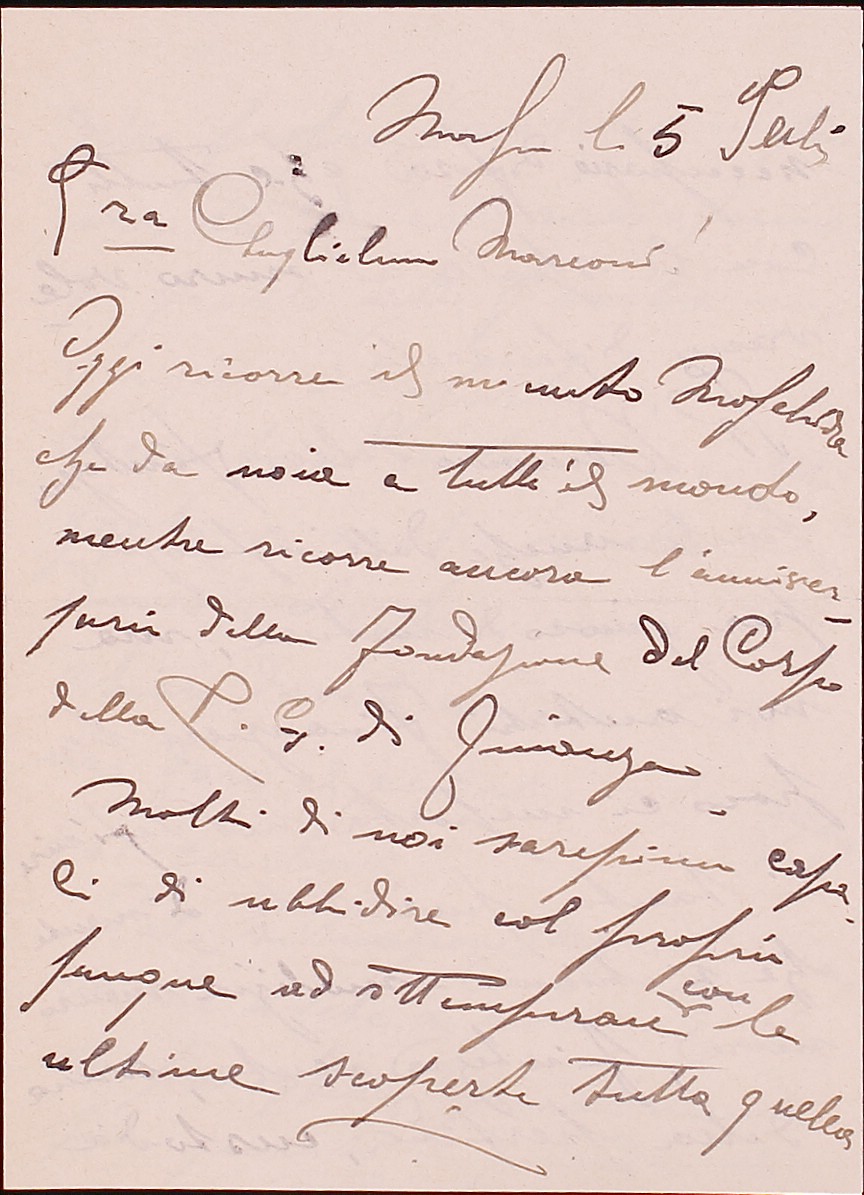 li 5
Guglielmo Marconi!
Oggi ricorre il minuto
che da noia a tutto il mondo,
mentre ricorre ancora l'anniver-
sario della Fondazione del Corpo
della R. G. di Finanza.
Molti di noi saressimo capa-
ci di ubbidire col proprio
sangue ad ottemperare con le
ultime scoperte tutta quella